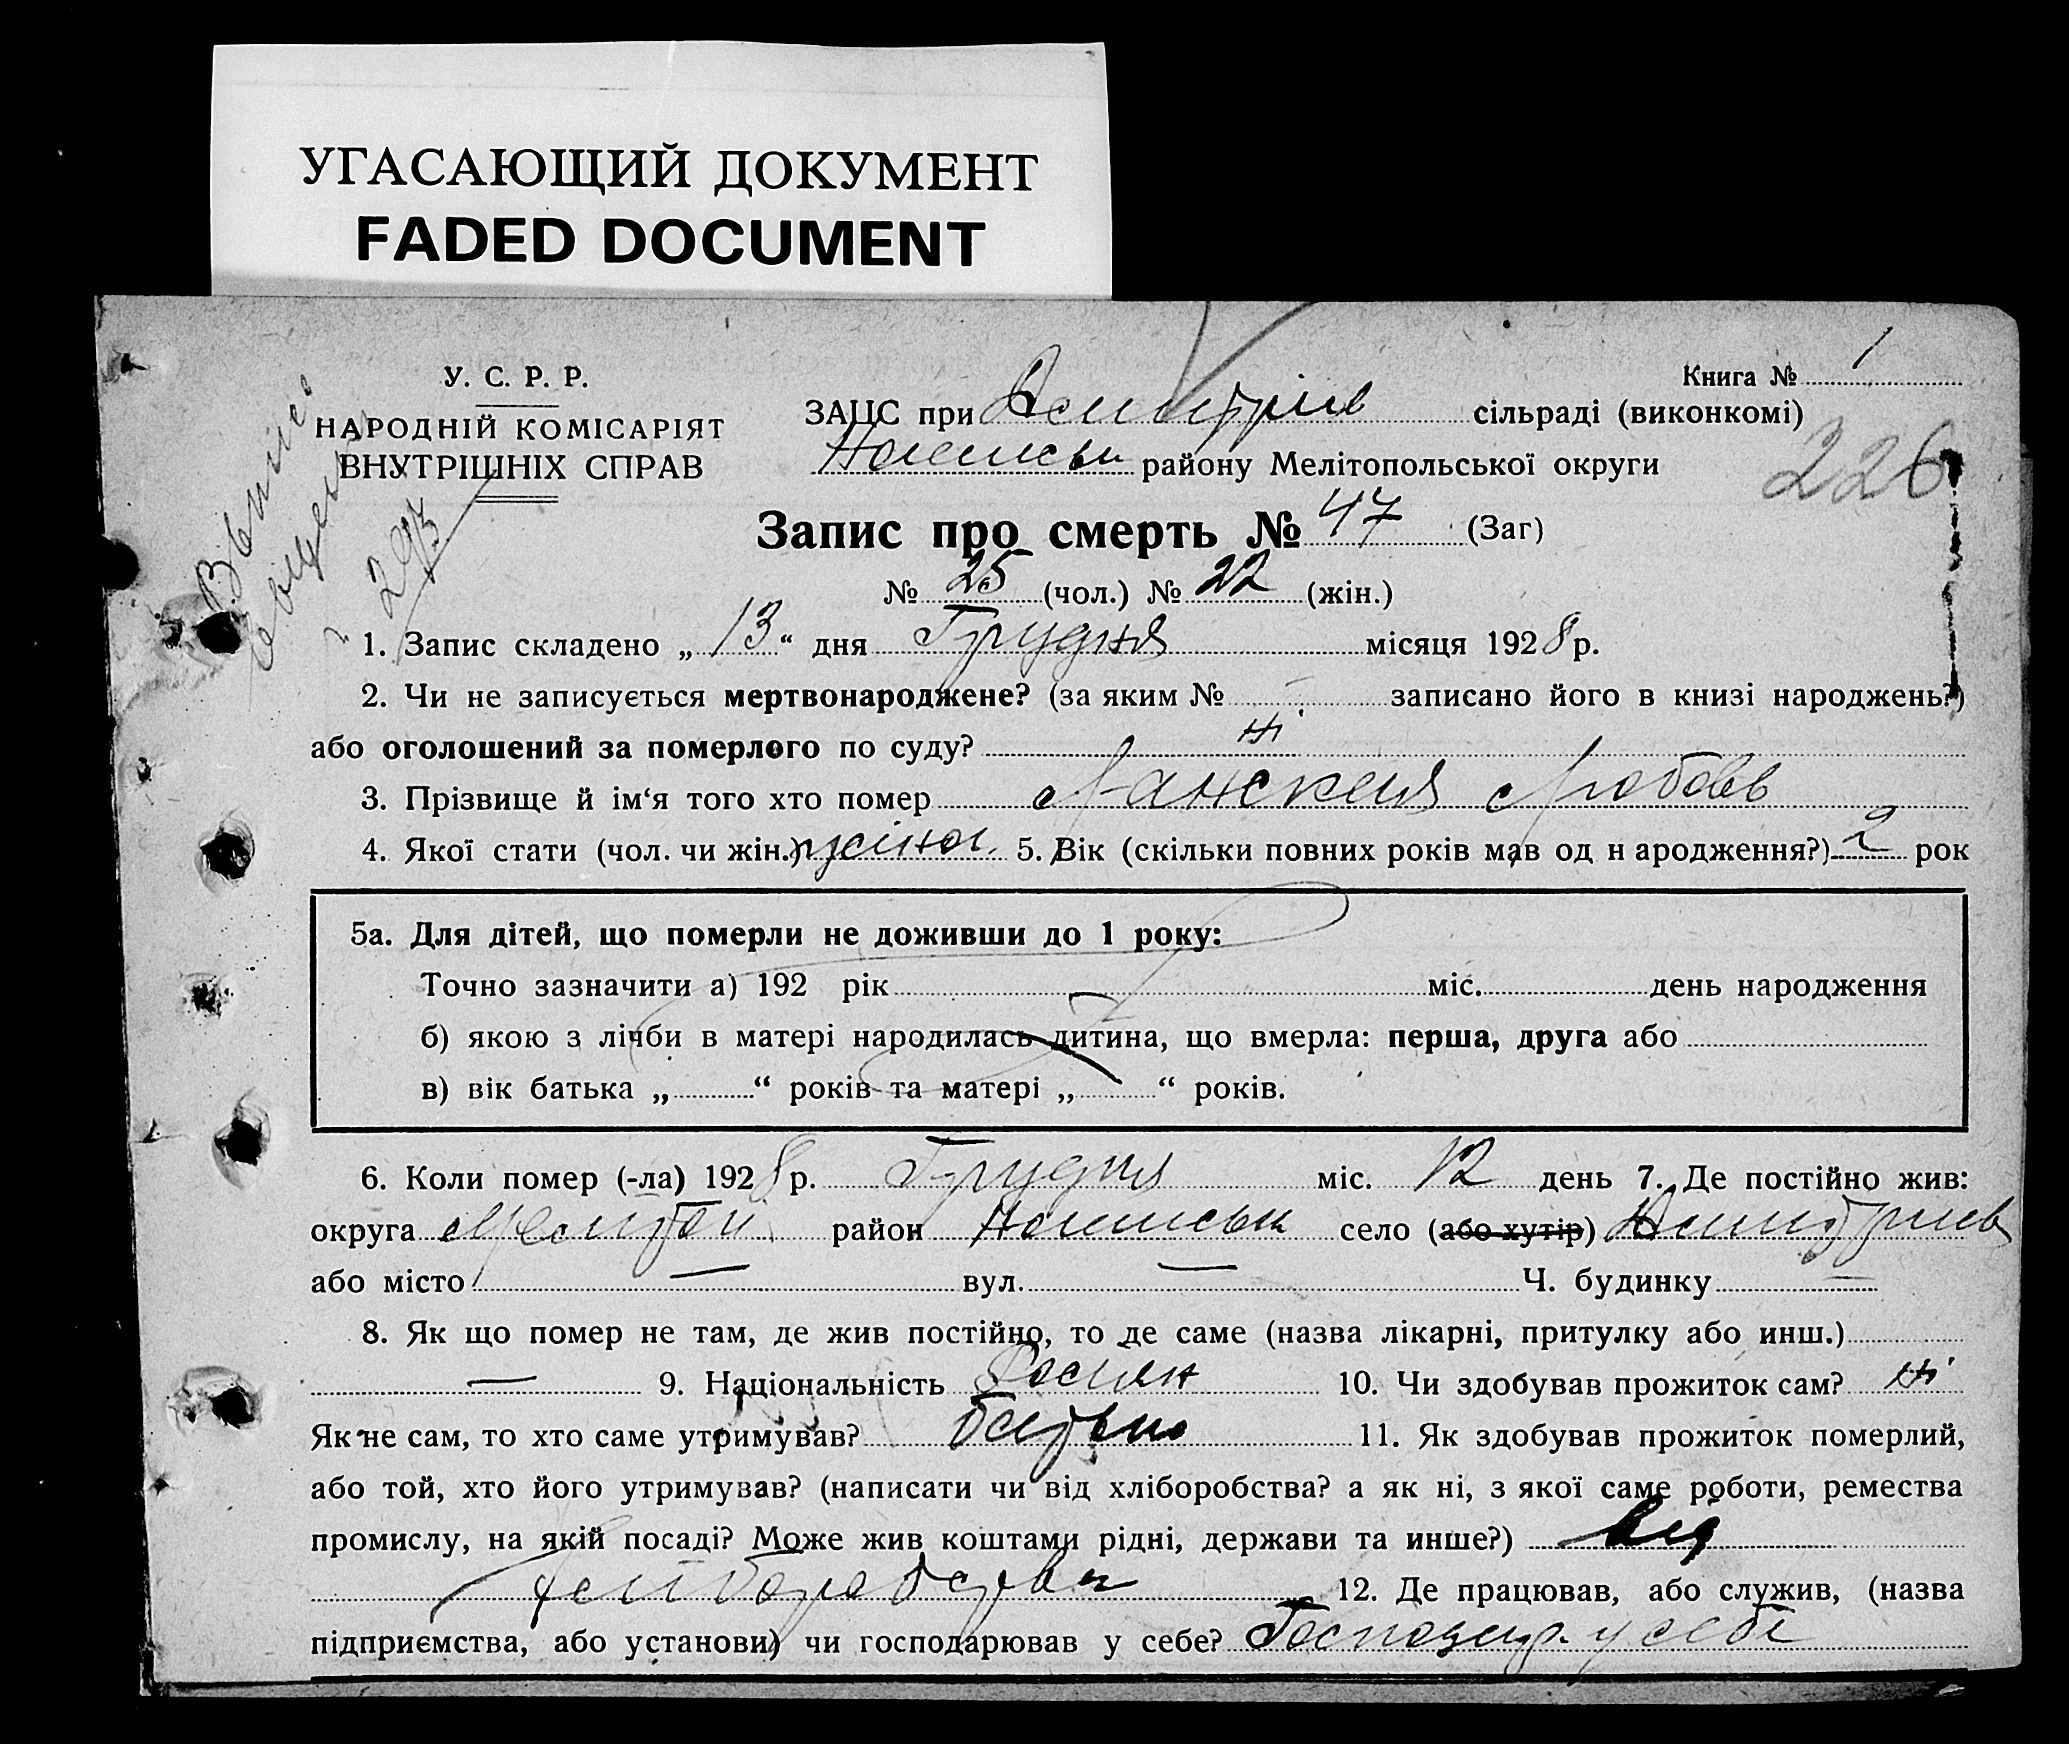 УГАСАЮЩИЙ ДОКУМЕНТ
FADED DOCUMENT
У. С. Р. Р.
НАРОДНІЙ КОМІСАРІЯТ
ВНУТРІШНІХ СПРАВ
Книга № 1
ЗАЦС при Дмитрів сільраді (виконкомі)
району Мелітопольської округи
226
293
Запис про смерть № 47 (Заг)
№ 25 (чол.) № 22 (жін.)
1. Запис складено „ 13 “ дня Грудня місяця 1928 р.
2. Чи не записується мертвонароджене? (за яким № - записано його в книзі народжень?)
або оголошений за померлого по суду? ні
3. Прізвище й ім‘я того хто помер Ланская Любовь
4. Якої стати (чол. чи жін.) жіноч. 5. Вік (скільки повних років мав од н ародження?) 2 рок
5а. Для дітей, що померли не доживши до 1 року:
Точно зазначити а) 192 рік міс. день народження
б) якою з лічби в матері народилась дитина, що вмерла: перша, друга або
в) вік батька „ “ років та матері „ “ років.
6. Коли помер (-ла) 1928 р. Грудня міс. 12 день 7. Де постійно жив:
округа район село (або хутір)
або місто — вул. — Ч. будинку —
8. Як що помер не там, де жив постійно, то де саме (назва лікарні, притулку або инш.)
— 9. Національність Росіян 10. Чи здобував прожиток сам? ні
Як не сам, то хто саме утримував? батько 11. Як здобував прожиток померлий,
або той, хто його утримував? (написати чи від хліборобства? а як ні, з якої саме роботи, ремества
промислу, на якій посаді? Може жив коштами рідні, держави та инше?) від
хліборобства 12. Де працював, або служив, (назва
підприємства, або установи) чи господарював у себе? Господар. у себе